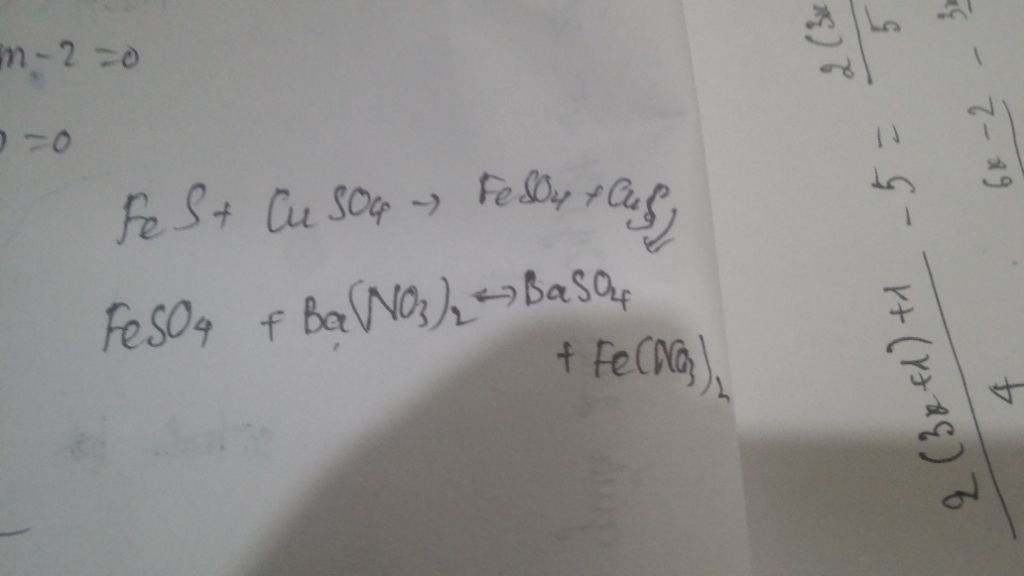 m-2=0
=0
FeS + CuSO4 → FeSO4 + CuS↓
FeSO4 + Ba(NO3)2 ↔ BaSO4
+ Fe(NO3)2
2(3x
5
2(3x+1)+1
4
-5=
6x-2
-
3x